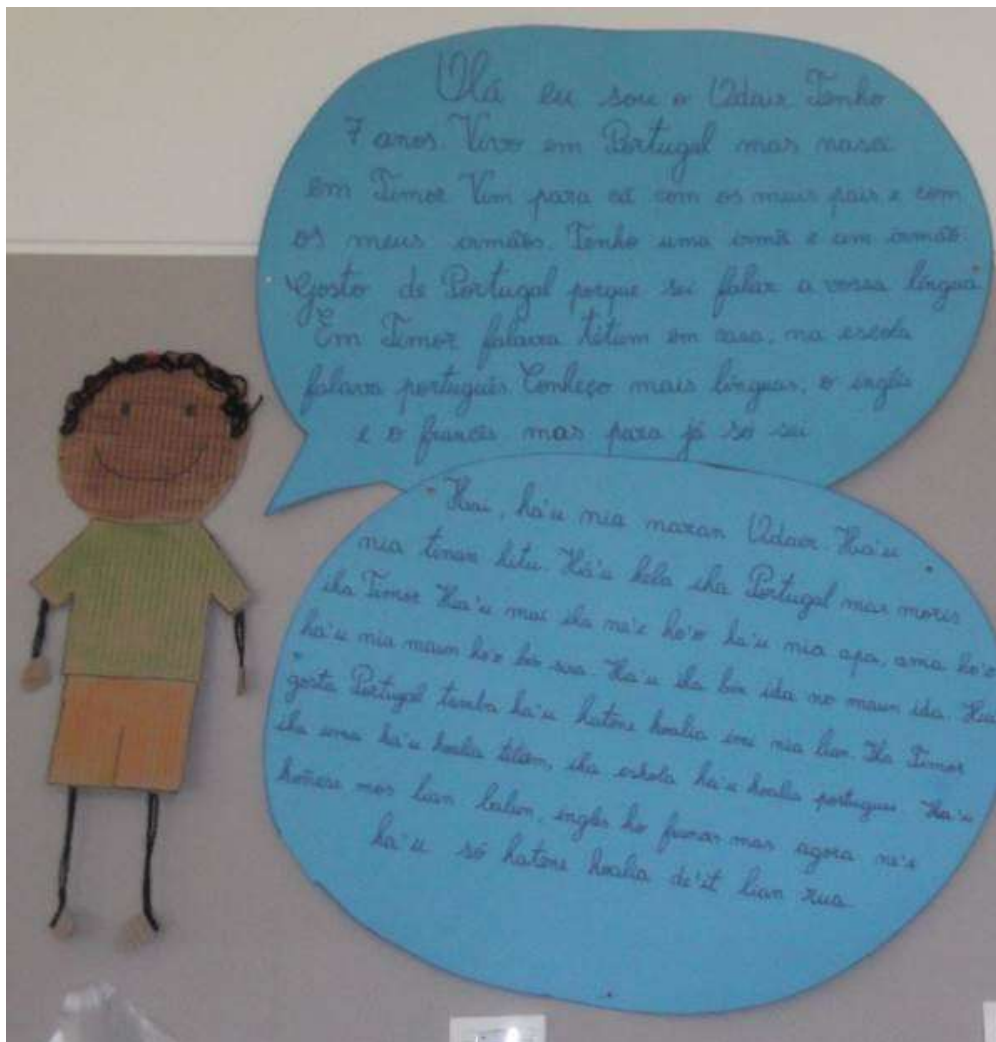 Olá eu sou o Udair Tenho
7 anos. Vivo em Portugal mas nasci
em Timor Vim para cá com os meus pais e com
os meus irmãos. Tenho uma irmã e um irmão.
Gosto de Portugal porque sei falar a vossa língua.
Em Timor falava tétum em casa, na escola
falava português. Conheço mais línguas, o inglês
e o francês mas para já só sei
Hai, ha'u nia naran Udair. Ha'u
nia tinan hitu. Há'u hela iha Portugal mas moris
iha Timor Ha'u mai iha na'e ho'o ha'u nia apa, ama ho'o
ha'u nia maun ho'o bin rua. Ha'u iha bin ida no maun ida. Ha'u
gosta Portugal tamba ha'u hatene koalia imi nia lian. Iha Timor
iha uma ha'u koalia tétum, iha eskola ha'u koalia portugues. Ha'u
koñese mos lian balun, inglês ho mas agora ne'e
ha'u só hatene koalia de'it lian rua